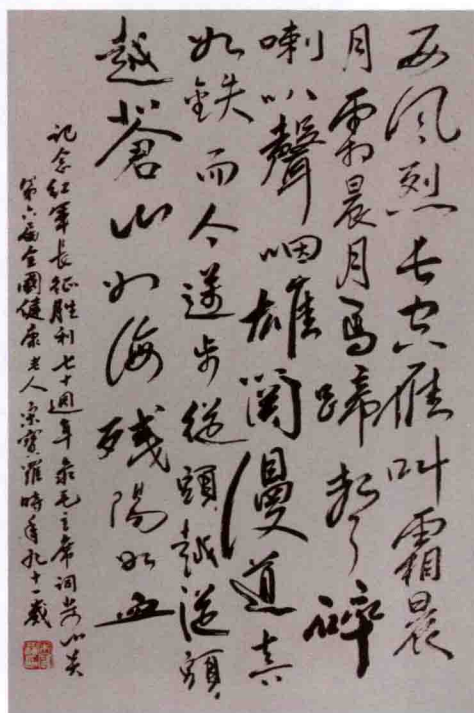 西风烈长空雁叫霜晨
月霜晨月馬蹄声碎
喇叭聲咽雄関漫道真
如鉄而今邁步從頭越從頭
越蒼山如海残陽如血
記念紅軍長征胜利七十週年录毛主席词娄山关
第六届全國健康老人宋寶羅時年九十一歲